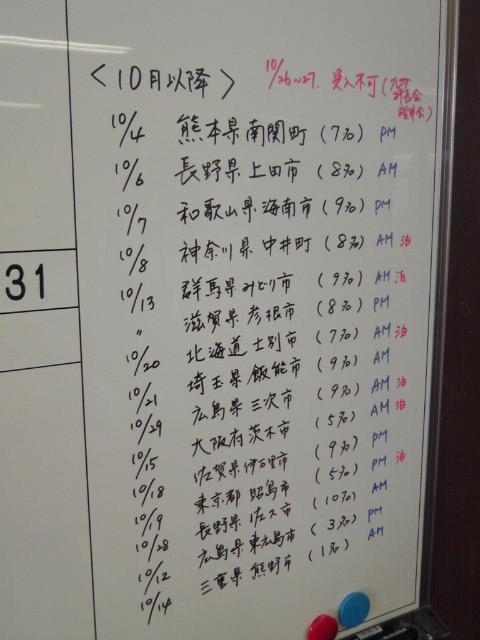 <10月以降>
10/26~27. 受入不可(
評議会
理事会)
10/4 熊本県南関町 (7名) PM
10/6 長野県上田市 (8名) AM
10/7 和歌山県海南市 (9名) PM
10/8 神奈川県中井町 (8名) AM 泊
10/13 群馬県みどり市 (9名) AM 泊
〃 滋賀県彦根市 (8名) PM
10/20 北海道士別市 (7名) AM 泊
10/21 埼玉県飯能市 (9名) AM
10/29 広島県三次市 (9名) AM 泊
10/15 大阪府茨木市 (5名) AM 泊
10/18 佐賀県伊万里市 (9名) PM
10/19 東京都昭島市 (5名) PM 泊
10/28 長野県佐久市 (10名) AM
10/12 広島県東広島市 (3名) PM
10/14 三重県熊野市 (1名) AM
31